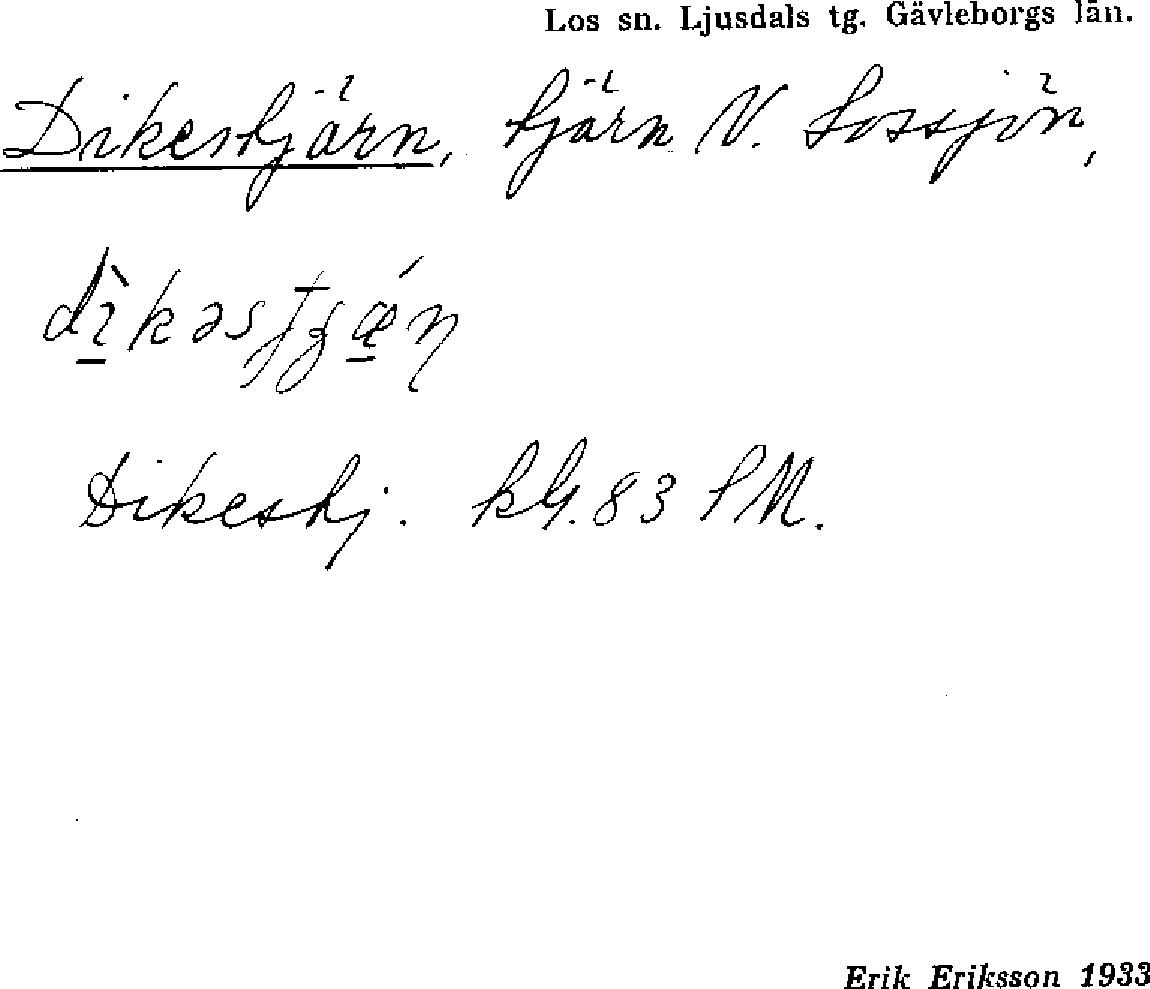 Los sn. Ljusdals tg. Gävleborgs län.
Dikestjärn, tjärn V. Lossjön,
dìkəstʒǽn
Dikestj. kbl. 83 SM.
Erik Eriksson 1933